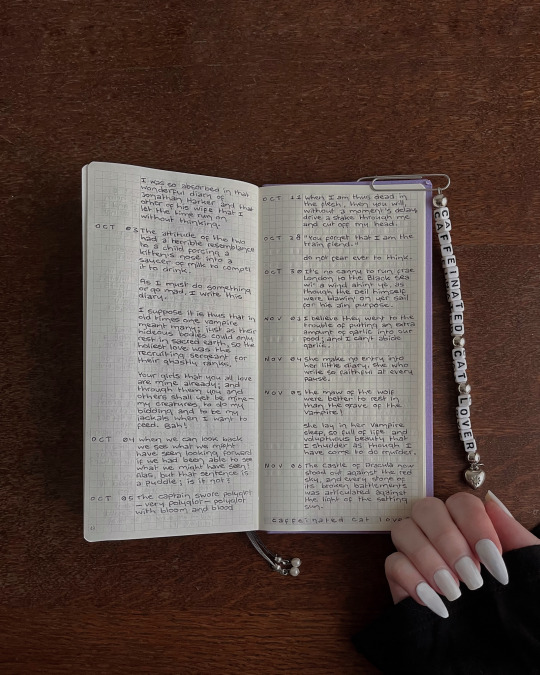 I was so absorbed in that
wonderful diary of
Jonathan Harker and that
other of his wife that I
let the time run on
without thinking.
OCT 03 The attitude of the two
had a terrible resemblance
to a child forcing a
kitten's nose into a
saucer of milk to compel
it to drink.
As I must do something
or go mad, I write this
diary.
I suppose it is thus that in
old times one vampire
meant many; just as their
hideous bodies could only
rest in sacred earth, so the
holiest love was the
recruiting sergeant for
their ghastly ranks.
Your girls that you all love
are mine already; and
through them you and
others shall yet be mine—
my creatures, to do my
bidding and to be my
jackals when I want to
feed. Bah!
OCT 04 When we can look back
we see what we might
have seen looking forward
if we had been able to see
what we might have seen!
Alas, but that sentence is
a puddle; is it not?
OCT 05 The captain swore polyglot
—very polyglot—polyglot
with bloom and blood
OCT 11 When I am thus dead in
the flesh, then you will,
without a moment's delay,
drive a stake through me
and cut off my head.
OCT 28 "You forget that I am the
train fiend."
do not fear ever to think.
OCT 30 It's no canny to run frae
London to the Black Sea
wi' a wind ahint ye, as
though the Deil himself
were blawin' on yer sail
for his ain purpose.
NOV 01 I believe they went to the
trouble of putting an extra
amount of garlic into our
food; and I can't abide
garlic.
NOV 04 She make no entry into
her little diary, she who
write so faithful at every
pause.
NOV 05 the maw of the wolf
were better to rest in
than the grave of the
Vampire!
She lay in her Vampire
sleep, so full of life and
voluptuous beauty that
I shudder as though I
have come to do murder.
NOV 06 The Castle of Dracula now
stood out against the red
sky, and every stone of
its broken battlements
was articulated against
the light of the setting
sun.
caffeinated cat love
CAFFEINATED CAT LOVER